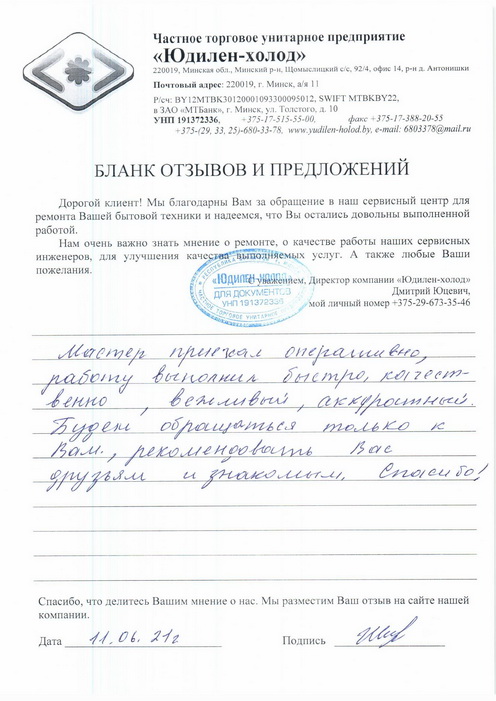 Частное торговое унитарное предприятие
«Юдилен-холод»
220019, Минская обл., Минский р-н, Щомыслицкий с/с, 92/4, офис 14, р-н д. Антонишки
Почтовый адрес: 220019, г. Минск, а/я 11
Р/сч: BY12MTBK30120001093300095012, SWIFT MTBKBY22,
в ЗАО «МТБанк», г. Минск, ул. Толстого, д. 10
УНП 191372336, +375-17-515-55-00, факс +375-17-388-20-55
+375-(29, 33, 25)-680-33-78, www.yudilen-holod.by, e-mail: 6803378@mail.ru
БЛАНК ОТЗЫВОВ И ПРЕДЛОЖЕНИЙ
Дорогой клиент! Мы благодарны Вам за обращение в наш сервисный центр для
ремонта Вашей бытовой техники и надеемся, что Вы остались довольны выполненной
работой.
Нам очень важно знать мнение о ремонте, о качестве работы наших сервисных
инженеров, для улучшения качества выполняемых услуг. А также любые Ваши
пожелания.
С уважением, Директор компании «Юдилен-холод»
Дмитрий Юцевич,
мой личный номер +375-29-673-35-46
«ЮДИЛЕН-ХОЛОД»
ДЛЯ ДОКУМЕНТОВ
УНП 191372336
Мастер приехал оперативно,
работу выполнил быстро, качест-
венно, вежливый, аккуратный.
Будем обращаться только к
Вам, рекомендовать Вас
друзьям и знакомым. Спасибо!
Спасибо, что делитесь Вашим мнение о нас. Мы разместим Ваш отзыв на сайте нашей
компании.
Дата 11.06.21г Подпись